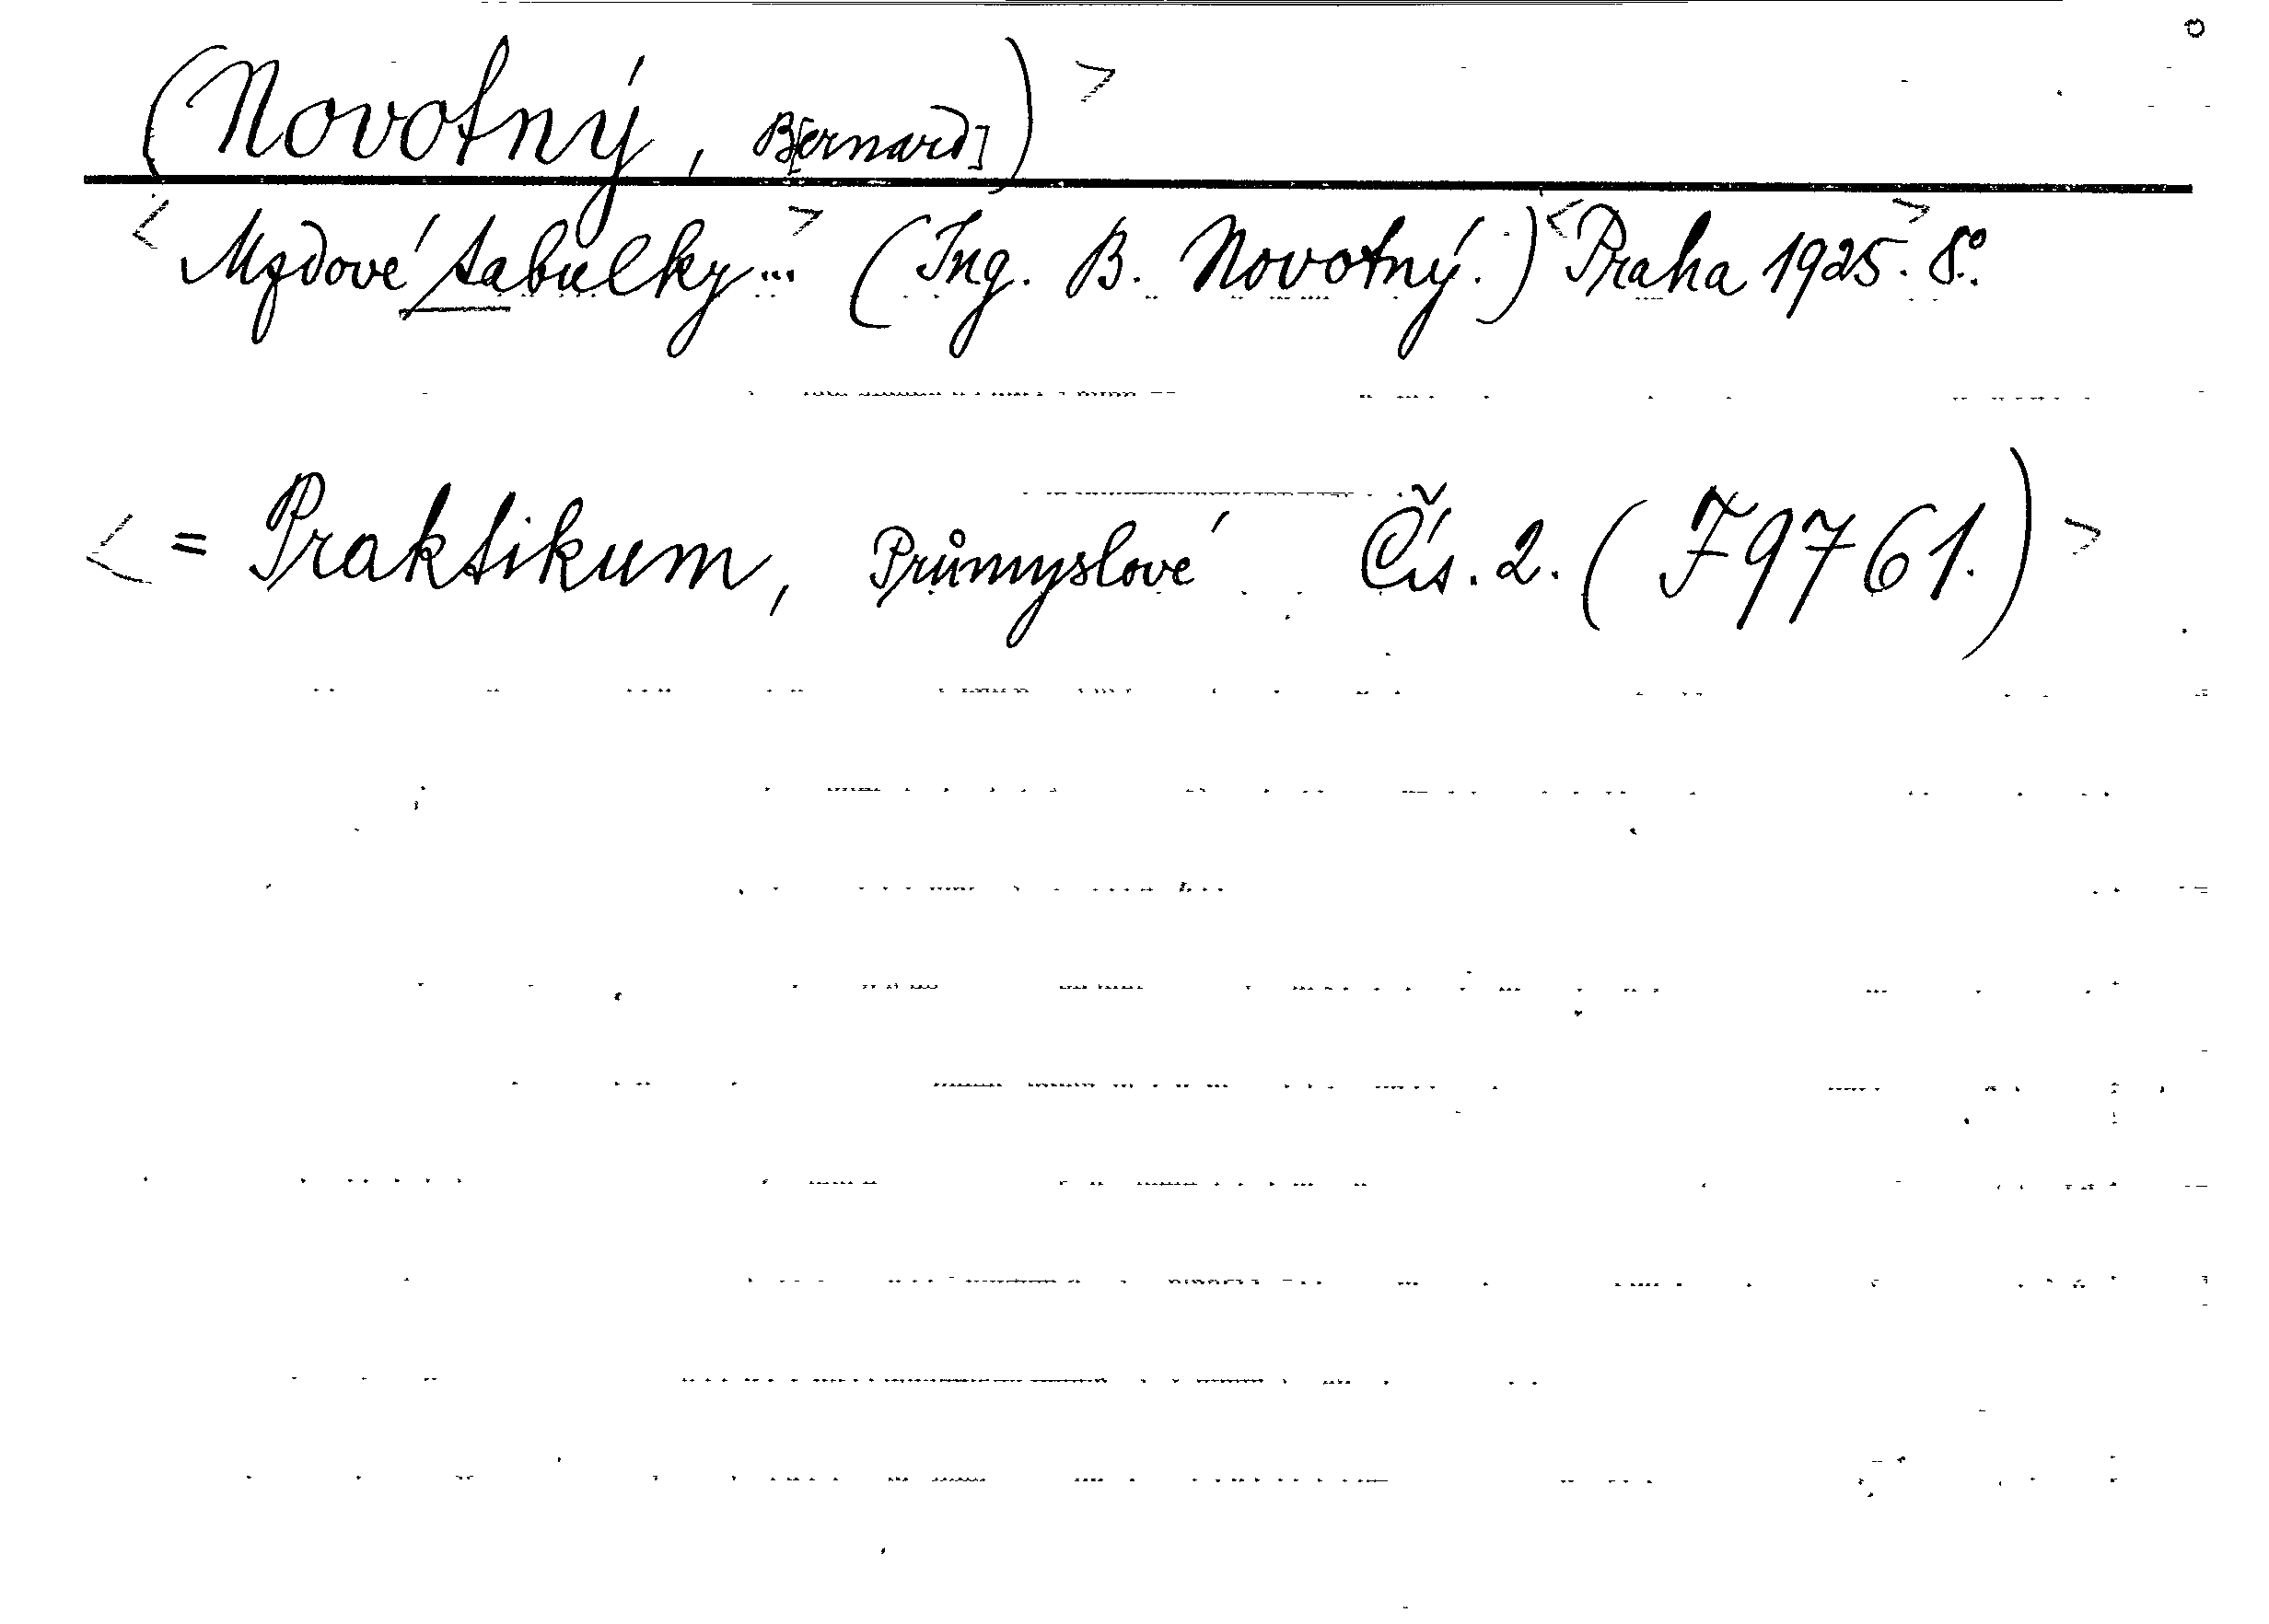 (Novotný, B[ernard]) >
< Mzdové tabulky... > (Ing. B. Novotný.) < Praha 1925. > 8°.
< = Praktikum, Průmyslové Čís. 2. (F9761.) >